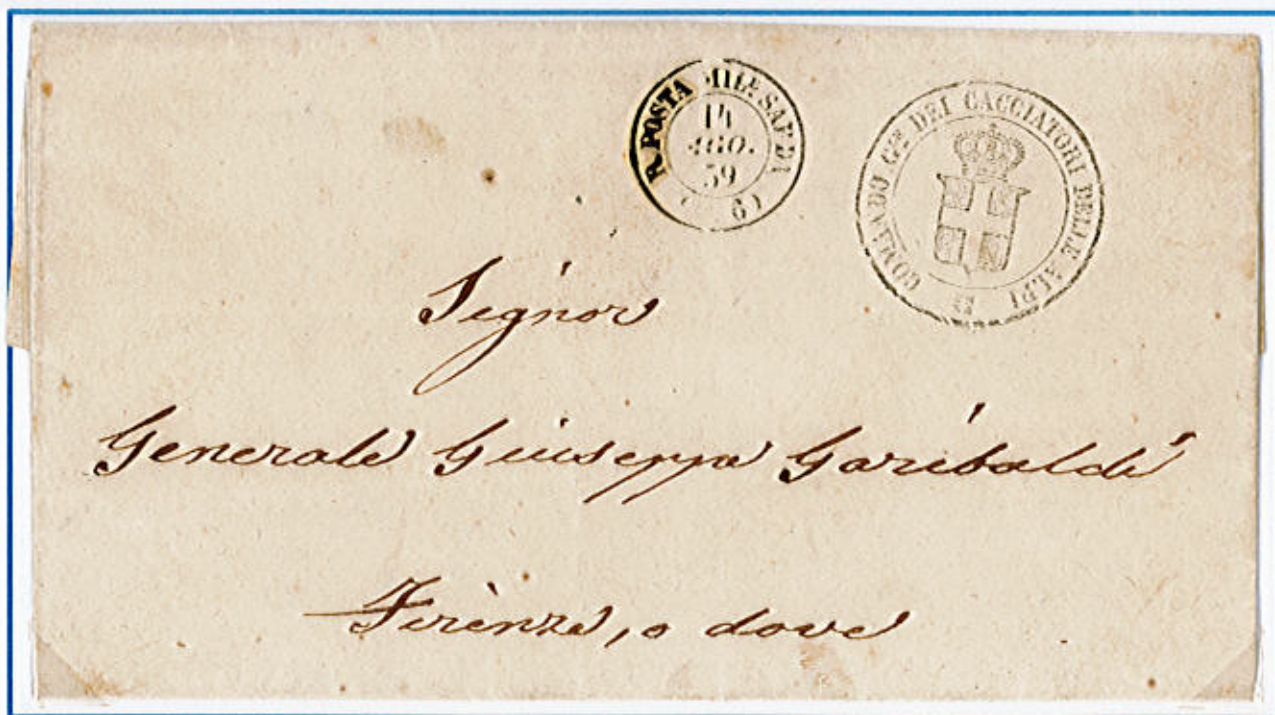 R. POSTA MIL.E SARDA
14
AGO.
59
(6)
COMANDO G.LE DEI CACCIATORI DELLE ALPI
Signor
Generale Giuseppe Garibaldi
Firenze, o dove